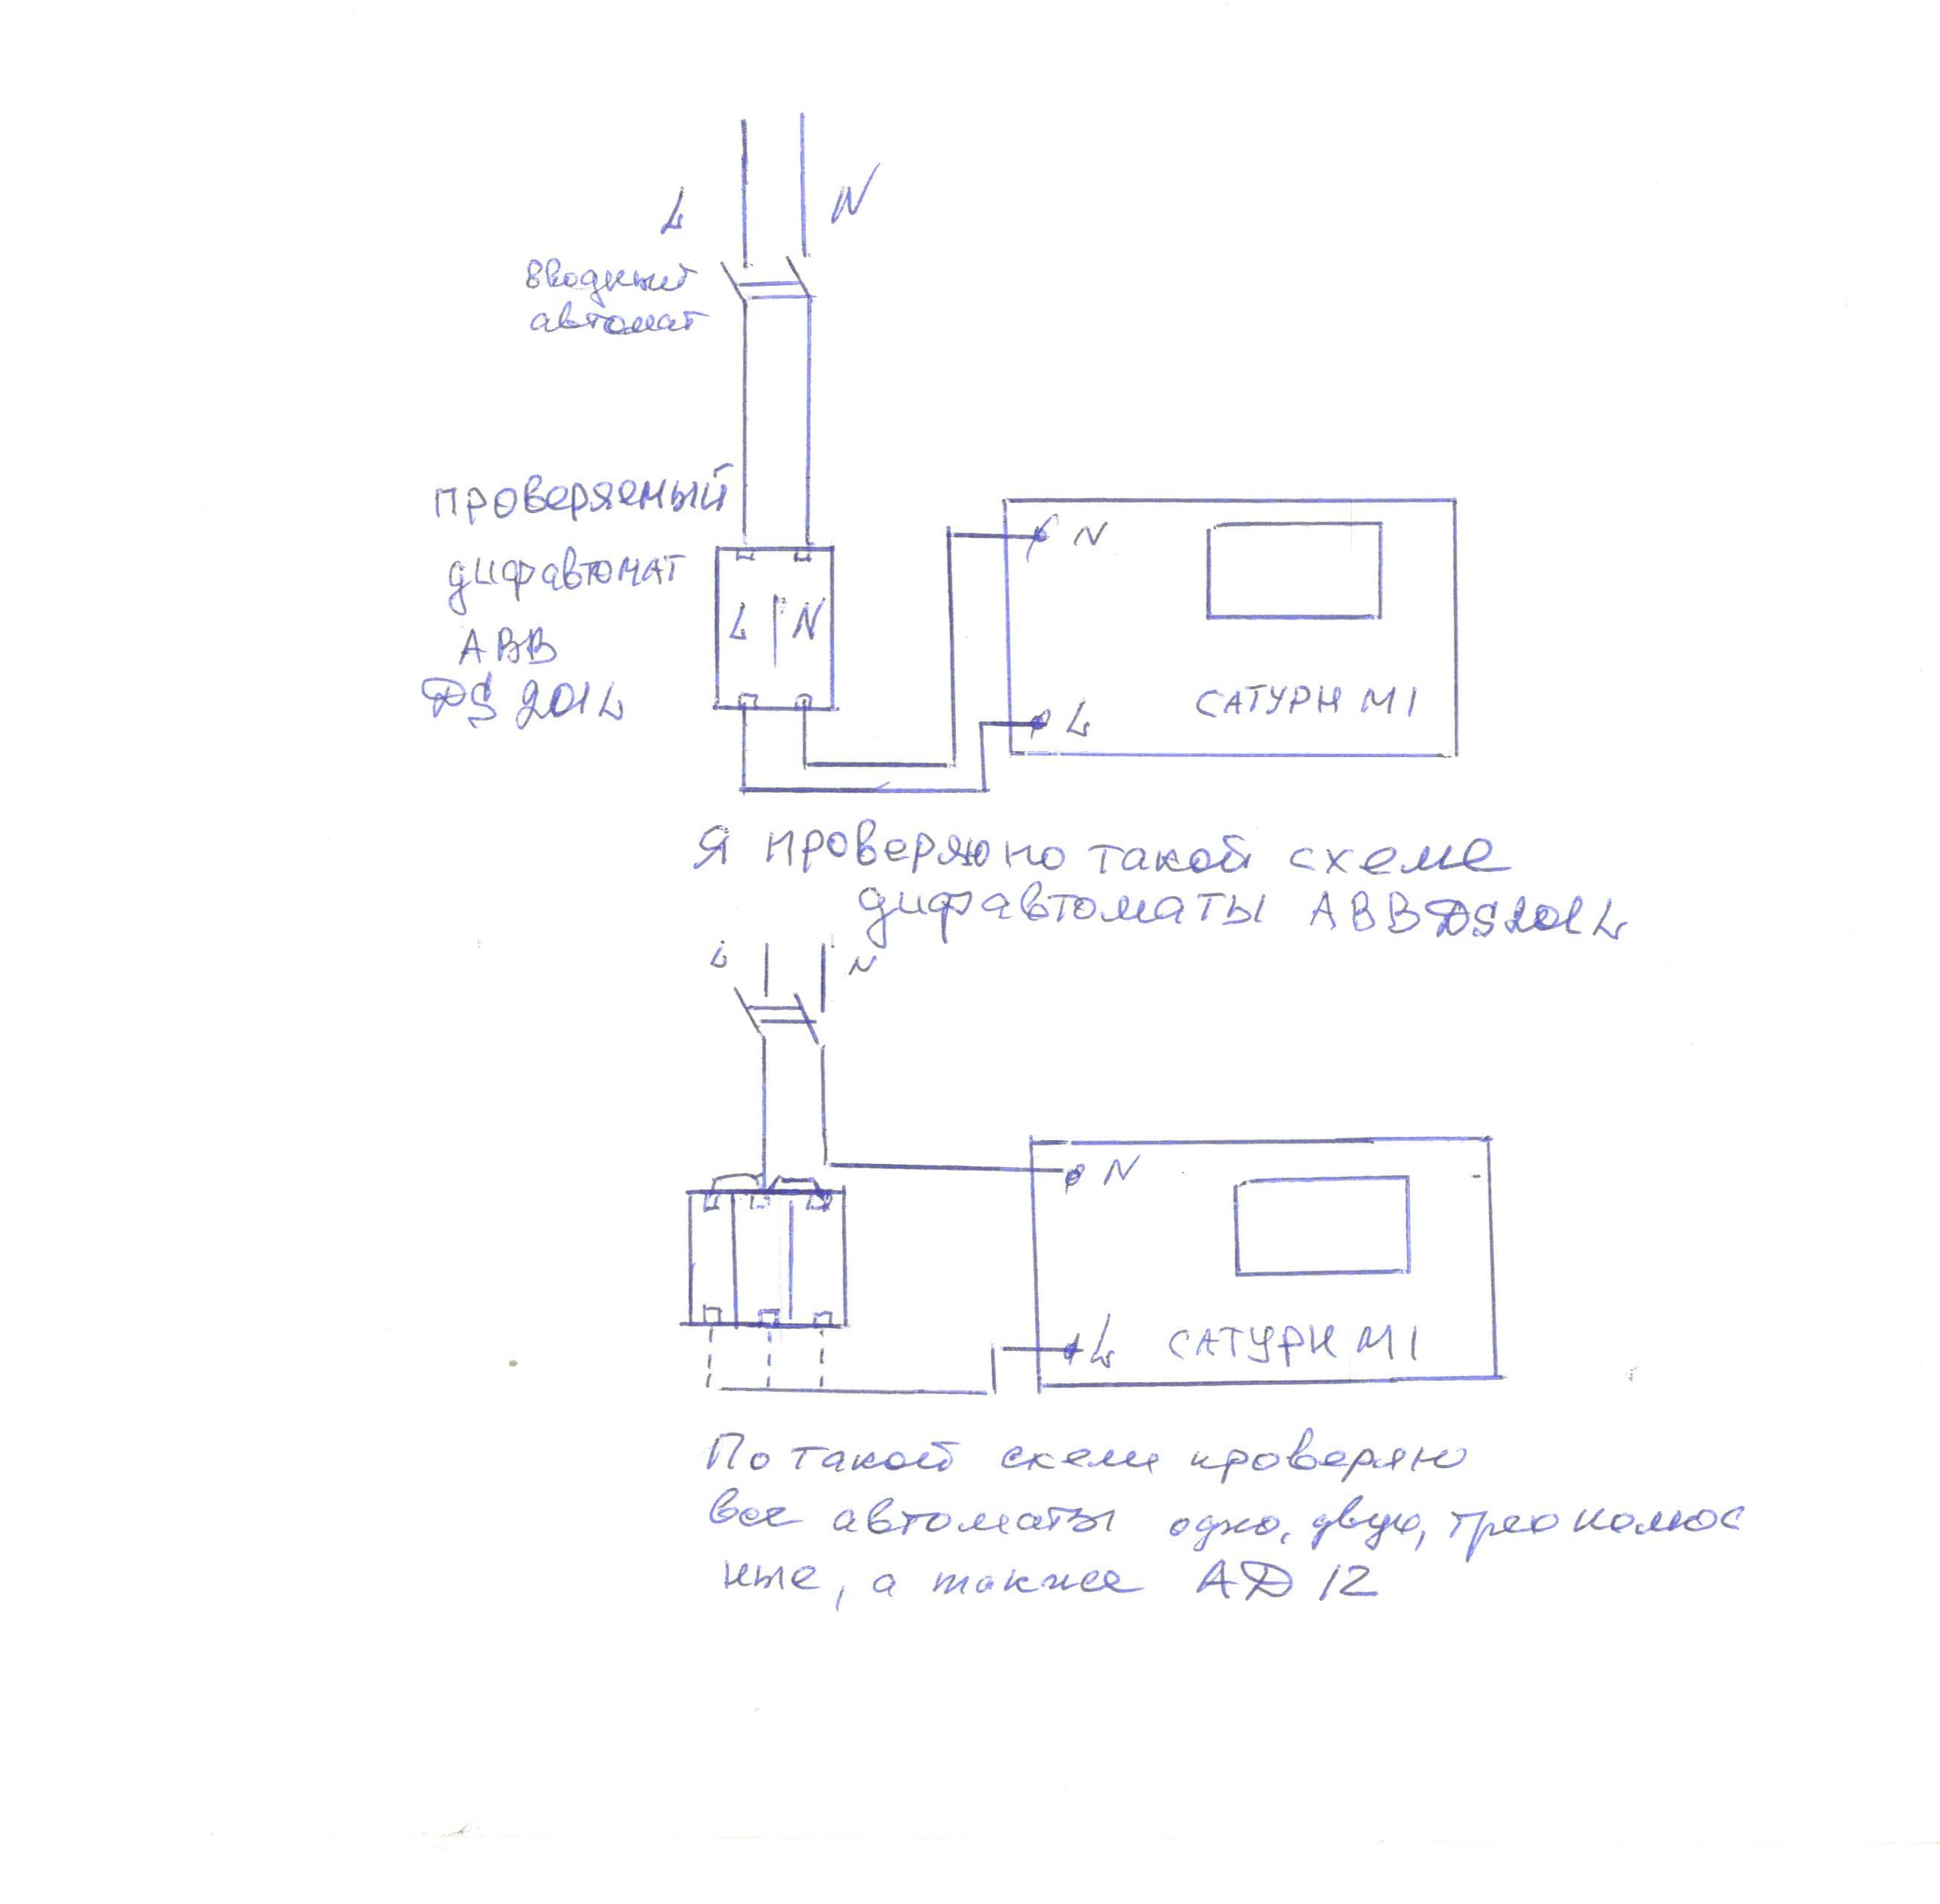 L N
вводный
автомат
проверяемый
дифавтомат
ABB
DS 201L
L N
N
L
САТУРН М1
Я проверяю по такой схеме
дифавтоматы ABB DS201L
L N
N
L САТУРН М1
По такой схеме проверяю
все автоматы одно, двух, трехполюс
ные, а также АД 12